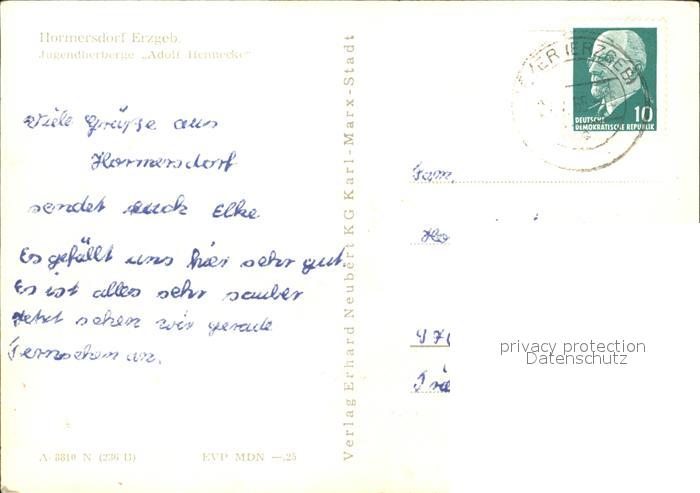 Hormersdorf Erzgeb.
Jugendherberge „Adolf Hennecke"
Viele Grüße aus
Hormersdorf
sendet euch Elke
Es gefällt uns hier sehr gut
Es ist alles sehr sauber
Jetzt sehen wir gerade
Fernsehen an.
A 8810 N (236 B)
EVP MDN —.25
Verlag Erhard Neubert KG Karl-Marx-Stadt
(ERZGEB)
10
DEUTSCHE
DEMOKRATISCHE REPUBLIK
Fam.
privacy protection
Datenschutz